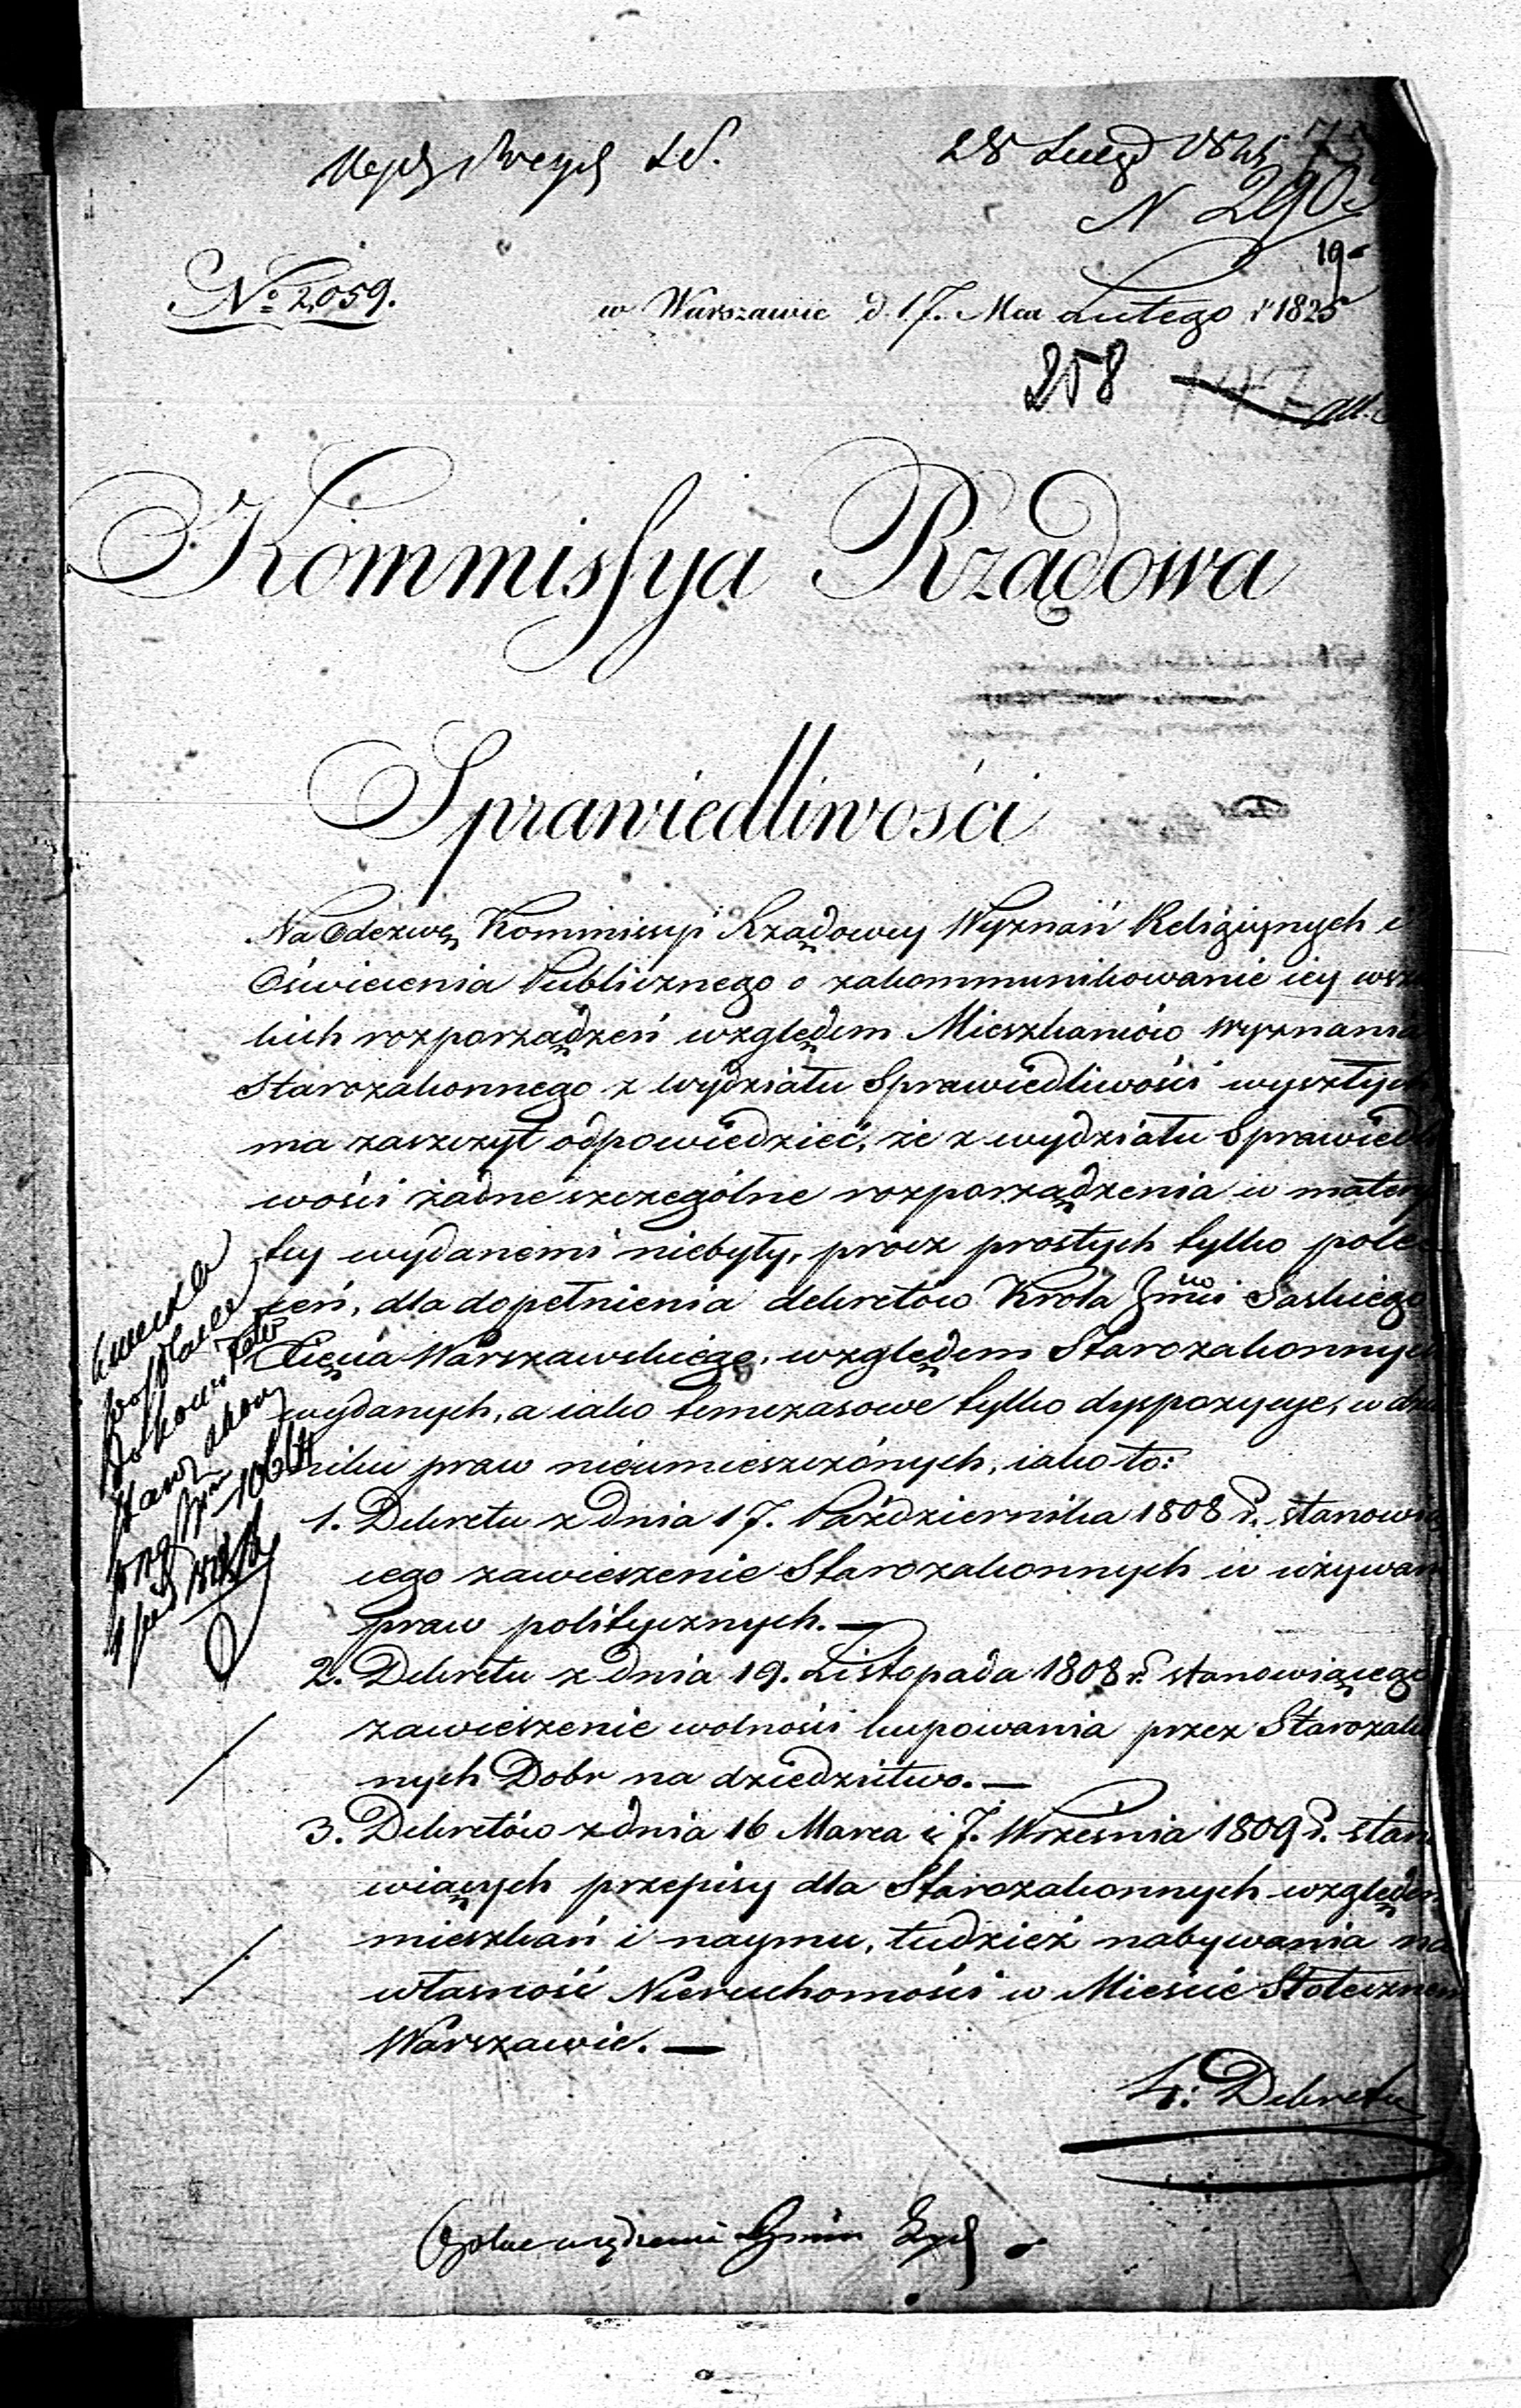 28 Lutego 1825
N 2903
19
No 2,059.
w Warszawie d. 17. Mca Lutego r 1825
258
Kommissya Rządowa
Sprawiedliwości
Na Odezwę Kommissyi Rządowey Wyznań Religiynych i
Oświecenia Publicznego o zakommunikowanie iey wsz
kich rozporządzeń względem Mieszkańców wyznania
Starozakonnego z wydziału Sprawiedliwości wyszłych
ma zaszczyt odpowiedzieć, że z wydziału Sprawiedli
wości żadne szczególne rozporządzenia w matery
tey wydanemi niebyły, procz prostych tylko pole
ceń, dla dopełnienia dekretów Króla Jmci Saskiego
Xięcia Warszawskiego, względem Starozakonnych
wydanych, a iako temczasowe tylko dyspozycye, w dzie
niku praw nieumieszczónych, iako to:
1. Dekretu z dnia 17. Października 1808 r. stanowią
cego zawieszenie Starozakonnych w używani
praw politycznych. —
2. Dekretu z dnia 19. Listopada 1808 r. stanowiącego
zawieszenie wolności kupowania przez Starozako
nych Dobr na dziedzictwo. —
3. Dekretów z dnia 16 Marca i 7. Września 1809 r. stano
wiących przepisy dla Starozakonnych względem
mieszkań i naymu, tudzież nabywania na
własność Nieruchomości w Mieście Stołecznem
Warszawie. —
4: Dekretu
Ogolne urządzenie Gmin Żyd